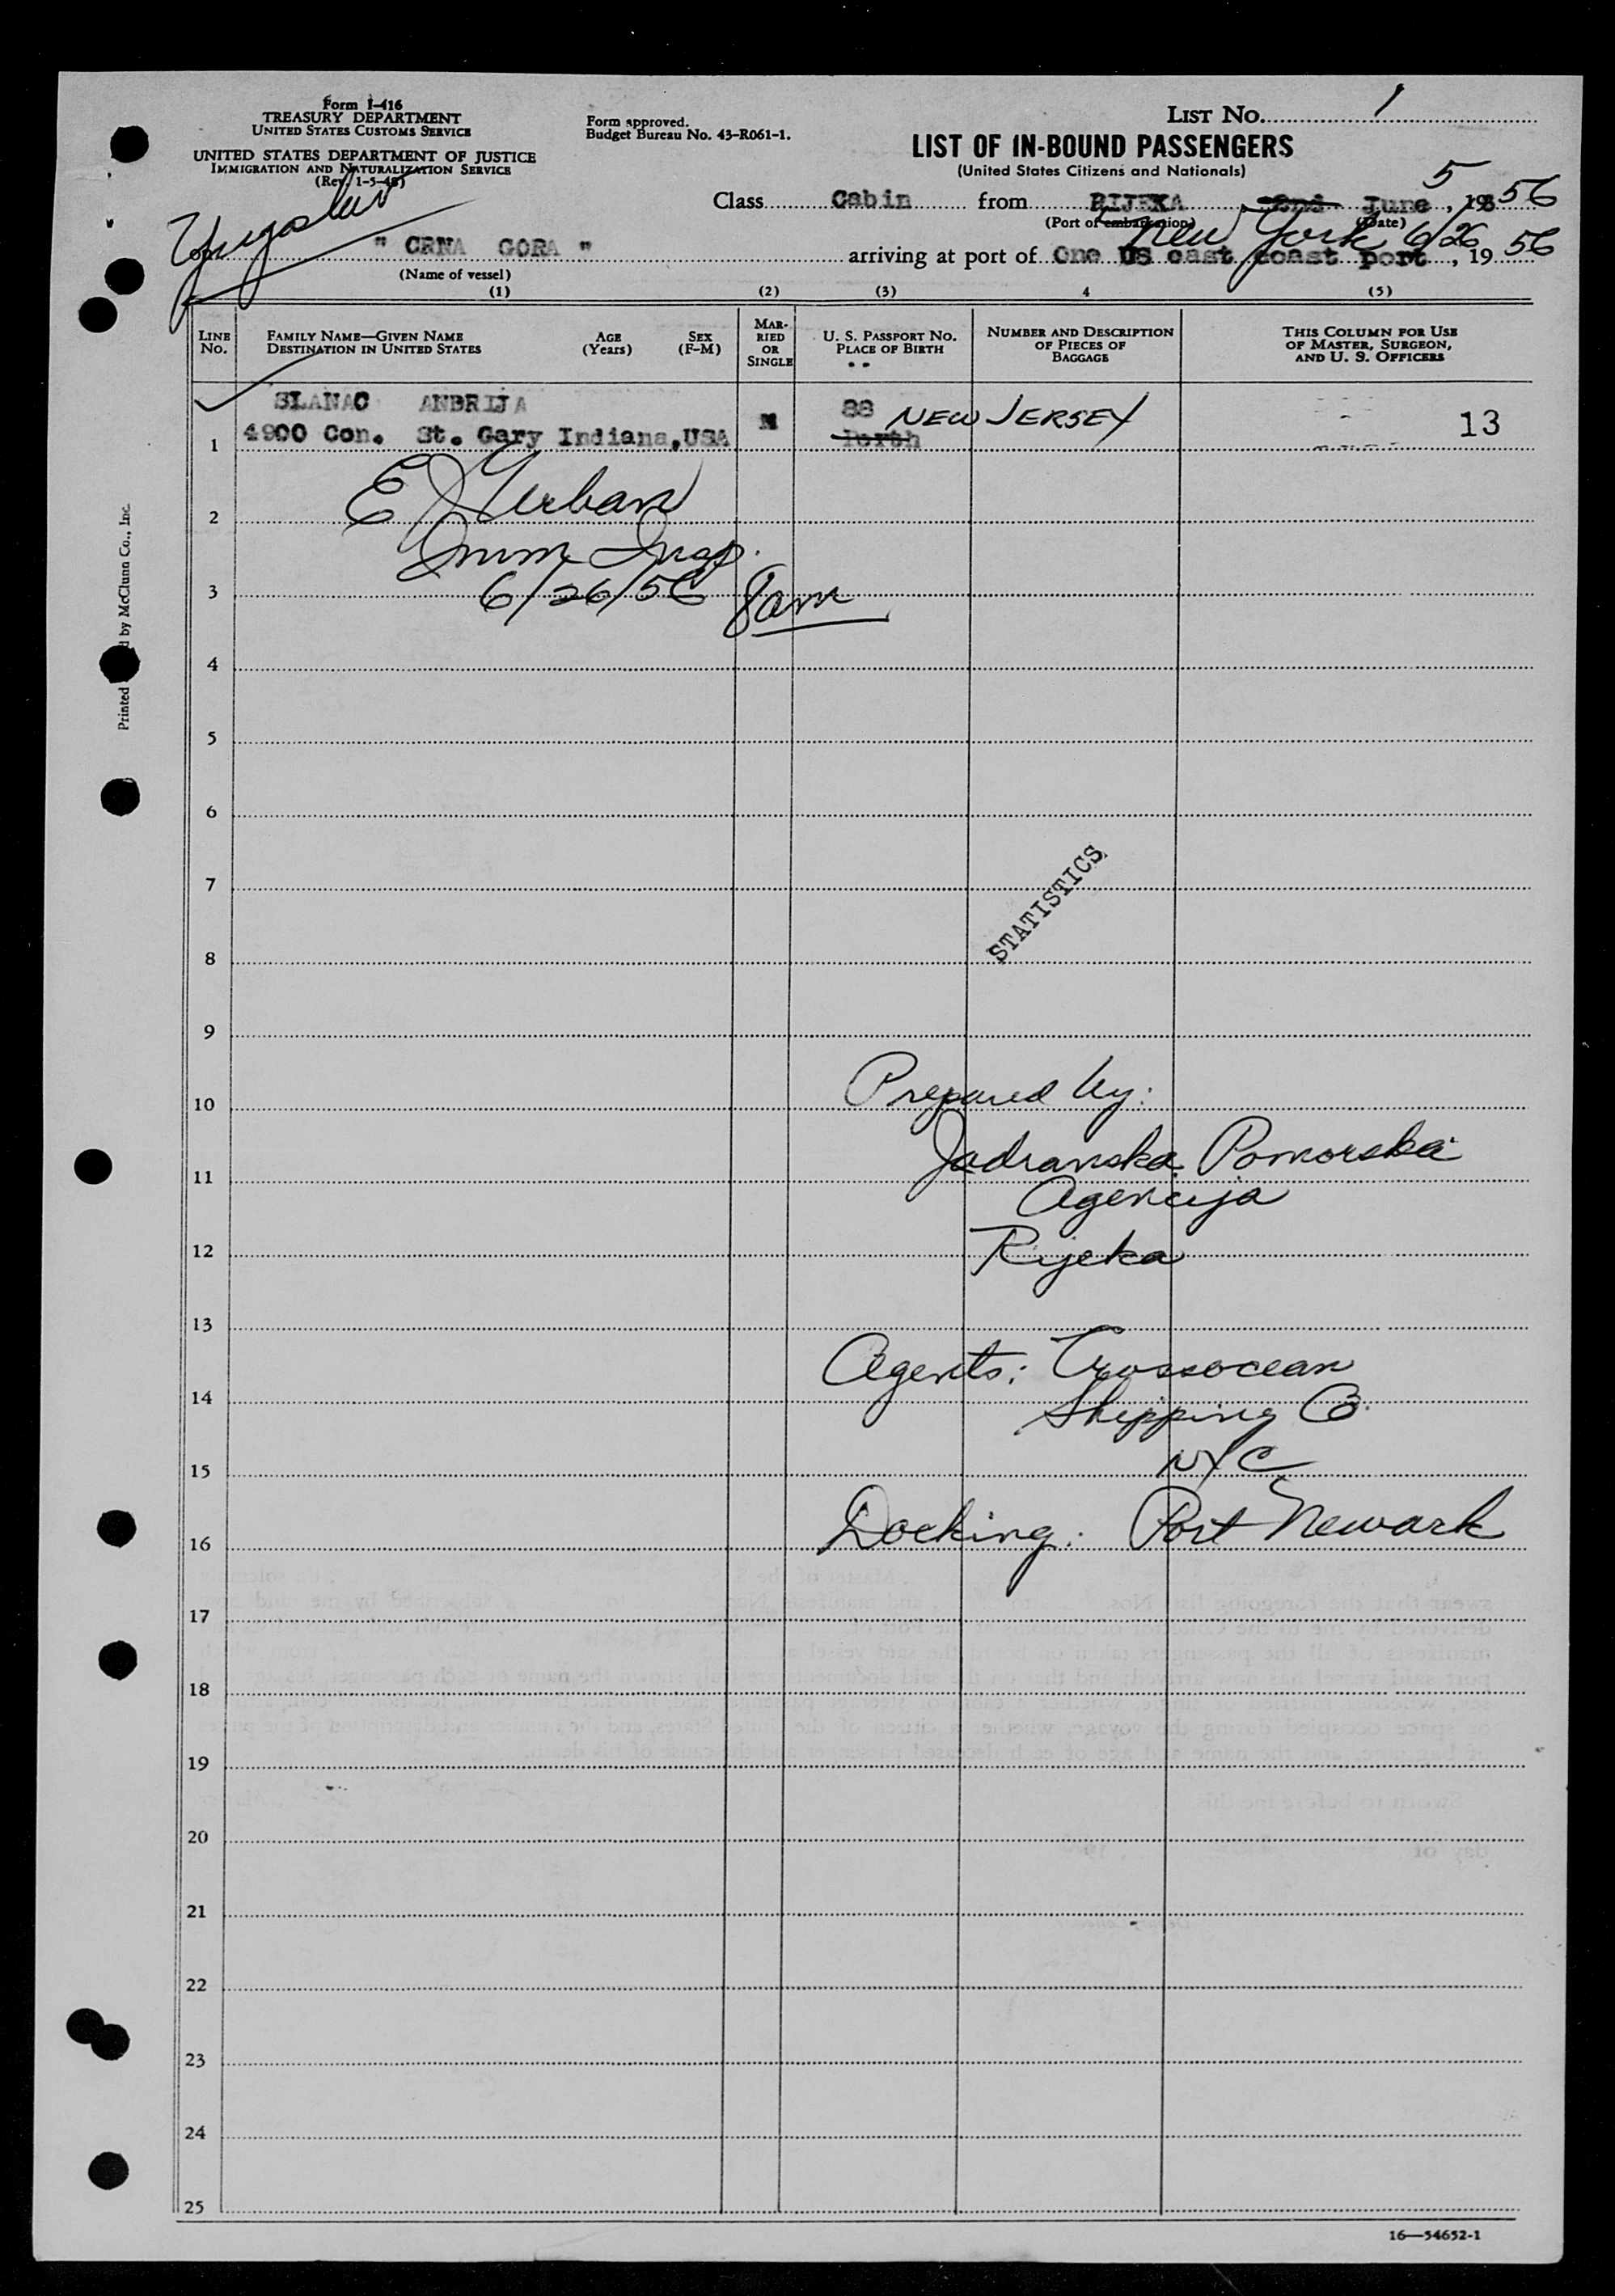 Form I-416
TREASURY DEPARTMENT
UNITED STATES CUSTOMS SERVICE
UNITED STATES DEPARTMENT OF JUSTICE
IMMIGRATION AND NATURALIZATION SERVICE
(Rev. 1-5-48)
Form approved.
Budget Bureau No. 43-R061-1.
LIST NO. 1
LIST OF IN-BOUND PASSENGERS
(United States Citizens and Nationals)
Class Cabin from RIJEKA 2nd June 5, 1956
(Port of embarkation) (Date)
Yugoslav
New York 6/26
" CRNA GORA " arriving at port of One US east coast port, 19 56
(Name of vessel)
(1) (2) (3) 4 (5)
LINE No. FAMILY NAME—GIVEN NAME DESTINATION IN UNITED STATES AGE (Years) SEX (F-M) MARRIED OR SINGLE U. S. PASSPORT NO. PLACE OF BIRTH NUMBER AND DESCRIPTION OF PIECES OF BAGGAGE THIS COLUMN FOR USE OF MASTER, SURGEON, AND U. S. OFFICERS
SLANAC ANDRIJA M 88 NEW JERSEY 13
1 4900 Con. St. Gary Indiana, USA
2 E J Urban
Imm Insp.
3 6/26/56 8am
4
5
6
7
STATISTICS
8
9
10 Prepared by:
11 Jadranska Pomorska
Agencija
12 Rijeka
13
Agents: Crossocean
14 Shipping Co.
15 NYC
16 Docking: Port Newark
17
18
19
20
21
22
23
24
25
16—54652-1
Printed by McClunn Co., Inc.